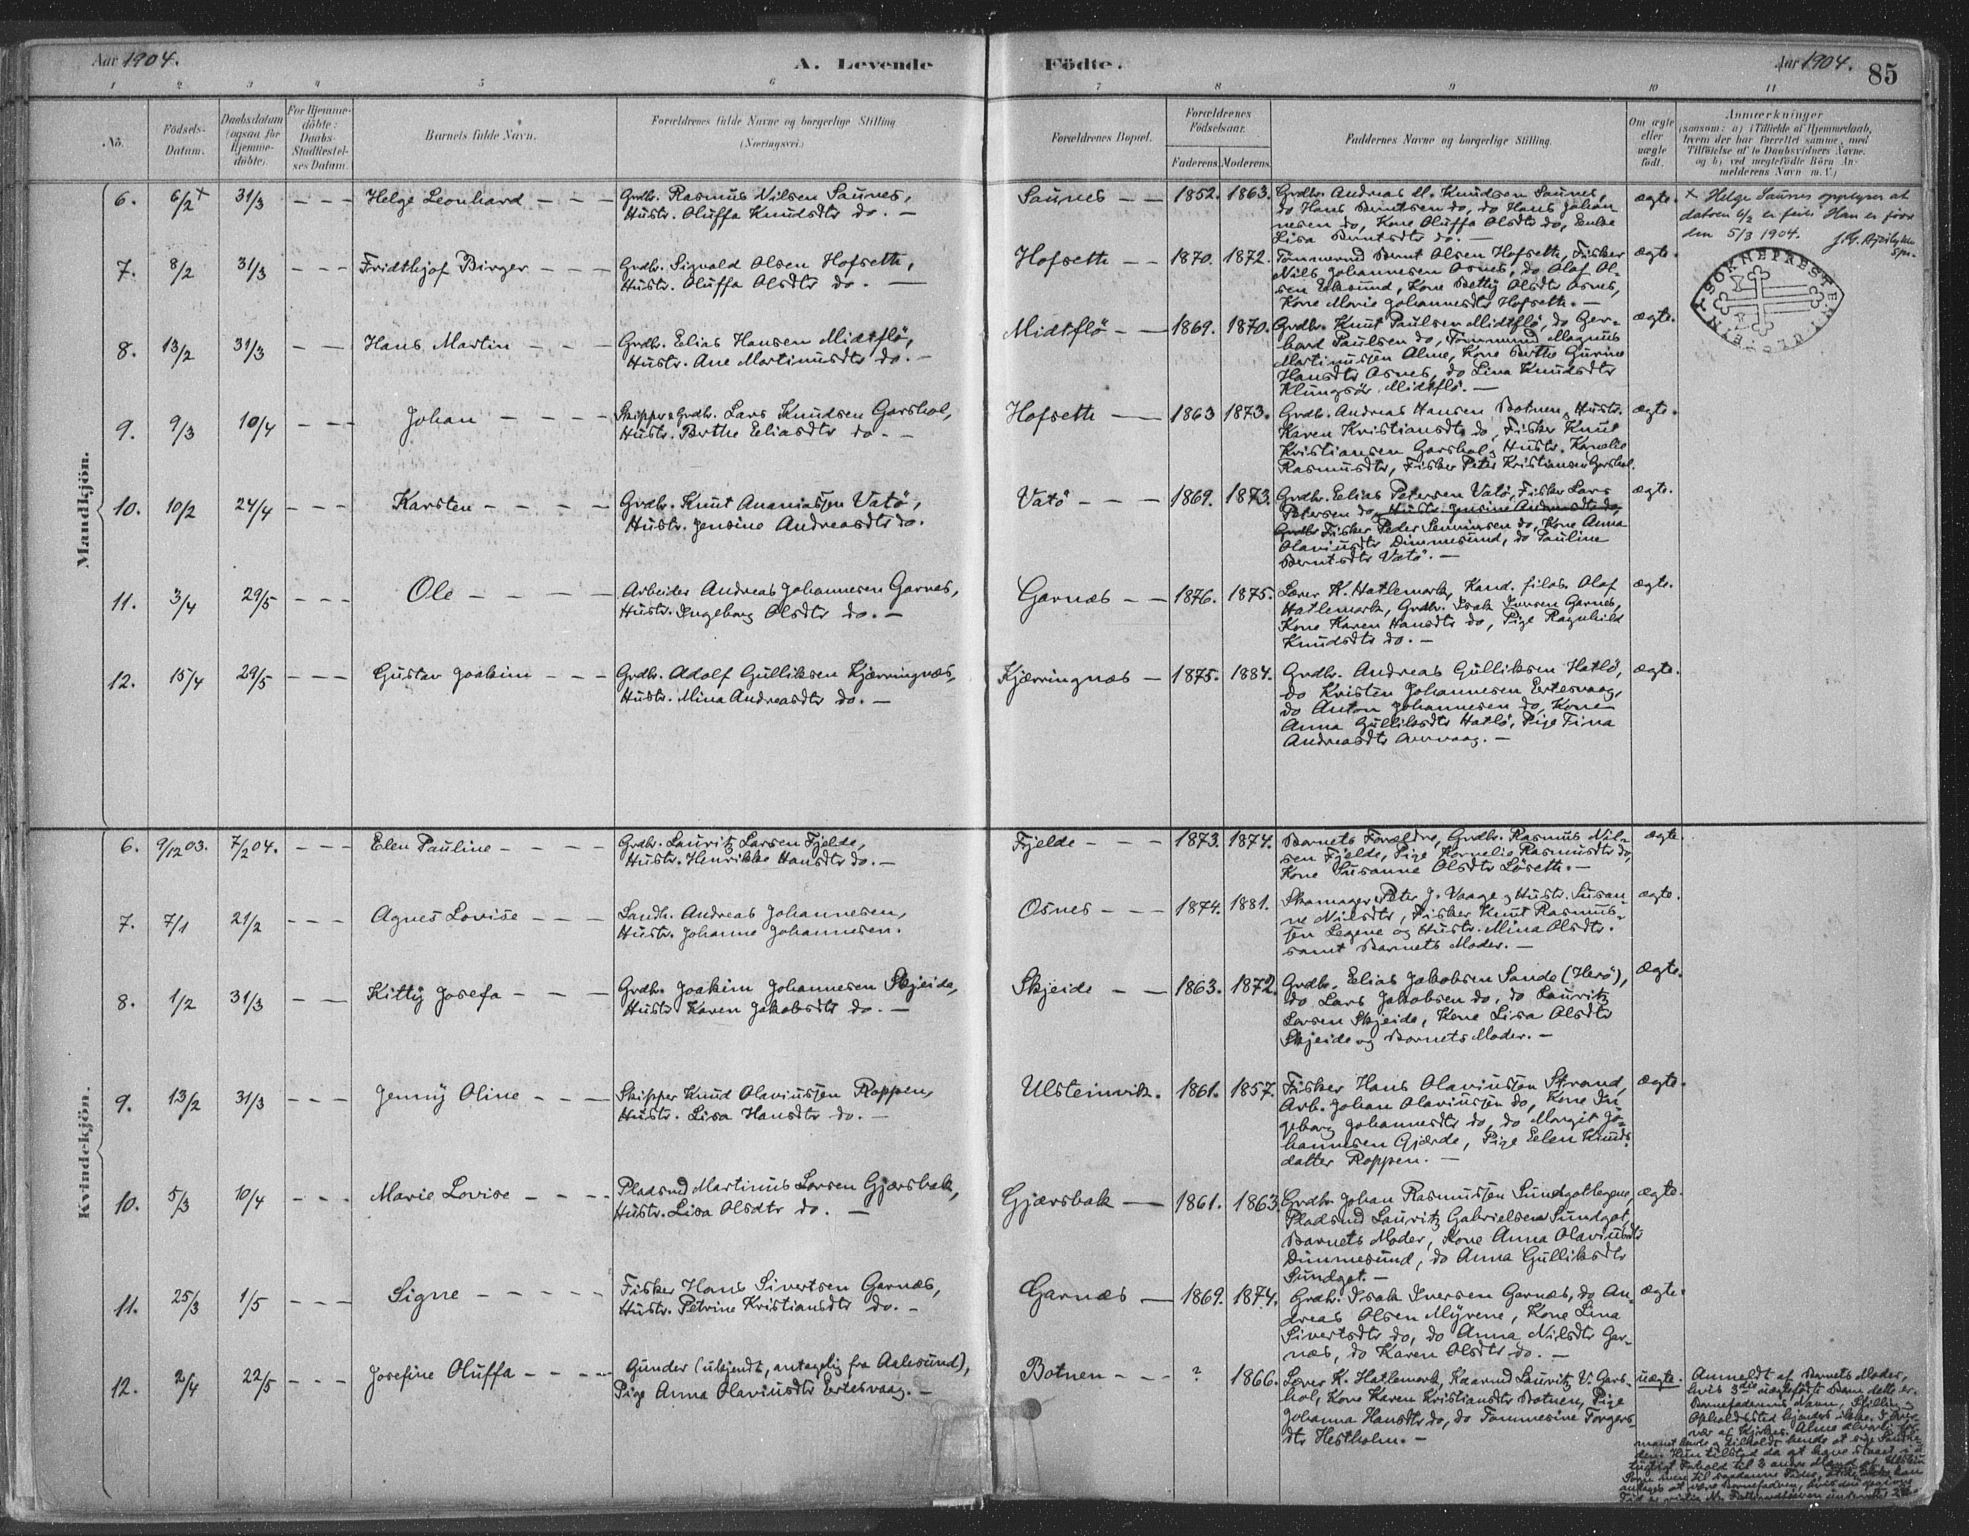 Aar 1904.
A. Levende
Födte.
Aar 1904.
85
1 2 3 4 5 6 7 8 9 10 11
No.
Födsels-
Datum.
Daabsdatum
(ogsaa for
Hjemme-
döbte).
For Hjemme-
döbte:
Daabs-
Stadfæstel-
ses Datum.
Barnets fulde Navn.
Forældrenes fulde Navne og borgerlige Stilling
(Næringsvei.)
Forældrenes Bopæl.
Forældrenes
Födselsaar.
Faderens. Moderens.
Faddernes Navne og borgerlige Stilling.
Om ægte
eller
uægte
födt.
Anmærkninger
(saasom: a) i Tilfælde af Hjemmedaab,
hvem der har forrettet samme, med
Tilföielse af to Daabsvidners Navne.
og b) ved uægtefödte Börn An-
melderens Navn m. V.)
Mandkjön.
6. 6/2 x 31/3 - - - Helge Leonhard - - -
Grdbr. Rasmus Nilsen Saunes,
Hustr. Oluffa Knudsdtr do. -
Saunes - - 1852. 1863.
Grdbr. Andreas M. Knudsen Saunes,
do Hans Berntsen do, do Hans Johan-
nesen do, Kone Oluffa Olsdtr do, Enke
Lisa Berntsdtr do. -
ægte.
x Helge Saunes opplyser at
datoen 6/2 er feil. Han er født
den 5/3 1904.
7. 8/2 31/3 - - - Fridthjof Birger - - -
Grdbr. Sigvald Olsen Hofseth,
Hustr. Oluffa Olsdtr do. -
Hofseth - - 1870. 1872.
Tømmermd Bernt Olsen Hofseth, Fisker
Nils Johannesen Osnes, do Olaf Ol-
sen Eiksund, Kone Betty Olsdtr Osnes,
Kone Marie Johannesdtr Hofseth. -
ægte.
SOKNEPRESTEN I ULSTEIN
8. 13/2 31/3 Hans Martin - - -
Grdbr. Elias Hansen Midtflö,
Hustr. Ane Martinusdtr do. -
Midtflö - - 1869. 1870.
Grdbr. Knut Paulsen Midtflö, do Ger-
hard Paulsen do, Tømmermd Magnus
Martinussen Alme, Kone Berthe Gurine
Hansdtr Osnes, do Lina Knudsdtr
Klungsör, Midtflö. -
ægte.
9. 9/3 10/4 - - - Johan - - - -
Skipper & Grdbr. Lars Knudsen Garshol,
Hustr. Berthe Eliasdtr do. -
Hofseth - - 1863 1873.
Grdbr. Andreas Hansen Botnen, Hustr.
Karen Kristiansdtr do, Fisker Knut
Kristiansen Garshol, Hustr. Kornelie
Rasmusdtr, Fisker Peter Kristiansen Garshol.
ægte.
10. 10/2 24/4 - - - Karsten - - - -
Grdbr. Knut Ananiassen Vatö,
Hustr. Jensine Andreasdtr do.
Vatö - - - 1869. 1873.
Grdbr. Elias Petersen Vatö, Fisker Lars
Petersen do, Hustr. Jensine Andreasdtr do,
Grdbr Fisker Peder do, Kone Anna
Olaviusdtr Dimmesund, do Pauline
Berntsdtr Vatö. -
ægte.
11. 3/4 29/5 - - - Ole - - - -
Arbeider Andreas Johannesen Garnæs,
Hustr. Ingeborg Olsdtr do. -
Garnæs - - 1876. 1875.
Lærer K. Hatlemark, Kand. filos. Olaf
Hatlemark, Grdbr. Isak Iversen Garnes,
Kone Karen Hansdtr do, Pige Ragnhild
Knudsdtr do. -
ægte.
12. 15/4 29/5 - - - Gustav Joakim - - -
Grdbr. Adolf Gulliksen Kjærringnæs,
Hustr. Mina Andreasdtr do. -
Kjærringnæs - 1875. 1884.
Grdbr. Andreas Gulliksen Hatlö,
do Kristen Johannesen Eertesvaag,
do Anton Johannesen do, Kone
Anna Gulliksdtr Hatlö, Pige Tina
Andreasdtr -
ægte.
Kvindekjön.
6. 9/12 03. 7/2 04. - - - Elen Pauline - - - -
Grdbr. Lauritz Larsen Fjelde,
Hustr. Henrikke Hansdtr do. -
Fjelde - - - 1873. 1874.
Barnets Forældre, Grdbr. Rasmus Nil-
sen Fjelde, Pige Kornelie Rasmusdtr do,
Kone Susanne Olsdtr Löseth. -
ægte.
7. 7/1 21/2 - - - Agnes Lovise - - -
Landh. Andreas Johannesen,
Hustr. Johanne Johannesen.
Osnes - - - 1874. 1881.
Skomager Peter J. Vaage & Hustr. Susan-
ne Nilsdtr, Fisker Knut Rasmus-
sen Legene og Hustr. Mina Olsdtr.
samt Barnets Moder. -
ægte.
8. 1/2 31/3 - - Kitty Josefa - - -
Grdbr. Joakim Johannesen Skjeide,
Hustr Karen Jakobsdtr do. -
Skjeide - - 1863. 1872.
Grdbr. Elias Jakobsen Sande (Herö),
do Lars Jakobsen do, do Lauritz
Larsen Skjeide, Kone Lisa Olsdtr
Skjeide og Barnets Moder. -
Ægte.
9. 13/2 31/3 - - - Jenny Oline - - -
Skipper Knud Olaviussen Roppen,
Hustr. Lisa Hansdtr do. -
Ulsteinvik. 1861. 1857.
Fisker Hans Olaviussen Strand,
Arb. Johan Olaviussen do, Kone In-
geborg Johannesdtr do, do Margit Jo-
hannesen Gjærde, Pige Eelen Knuds-
datter Roppen. -
Ægte.
10. 5/3 10/4 - - - Marie Lovise - - - -
Pladsmd Martinus Larsen Gjærsbak,
Hustr. Lisa Olsdtr do. -
Gjærsbak - 1861. 1863.
Grdbr. Johan Rasmussen Sundgotlegene,
Pladsmd Lauritz Gabrielsen Sundgot,
Barnets Moder, Kone Anna Olaviusdtr
Dimmesund, do Anna Gulliksdtr
Sundgot. -
ægte.
11. 25/3 1/5 - - - Signe - - - - -
Fisker Hans Sivertsen Garnæs,
Hustr. Petrine Kristiansdtr do. -
Garnæs - 1869. 1874.
Grdbr. Isak Iversen Garnæs, do An-
dreas Olsen Myrene, Kone Lina
Sivertsdtr do, do Anna Nilsdtr Gar-
næs, do Karen Olsdtr do. -
ægte.
12. 2/4 22/5 - - - Josefine Oluffa - - - -
Gunder (ukjendt, antagelig fra Aalesund),
Pige Anna Olaviusdtr Eertesvaag. -
Botnen - - - ? 1866.
Lærer K. Hatlemark, Kaarmd Lauritz V. Gars-
hol, Kone Karen Kristiansdtr Botnen, Pige
Johanna Hansdtr do, do Tommesine Torgers-
dtr Hestholm. -
uægte.
Anmeldt af Barnets Moder,
hvis 3die uægtefödte Barn dette er.
Barnefaderens Navn, Stilling &
Opholdssted kjendes ikke.